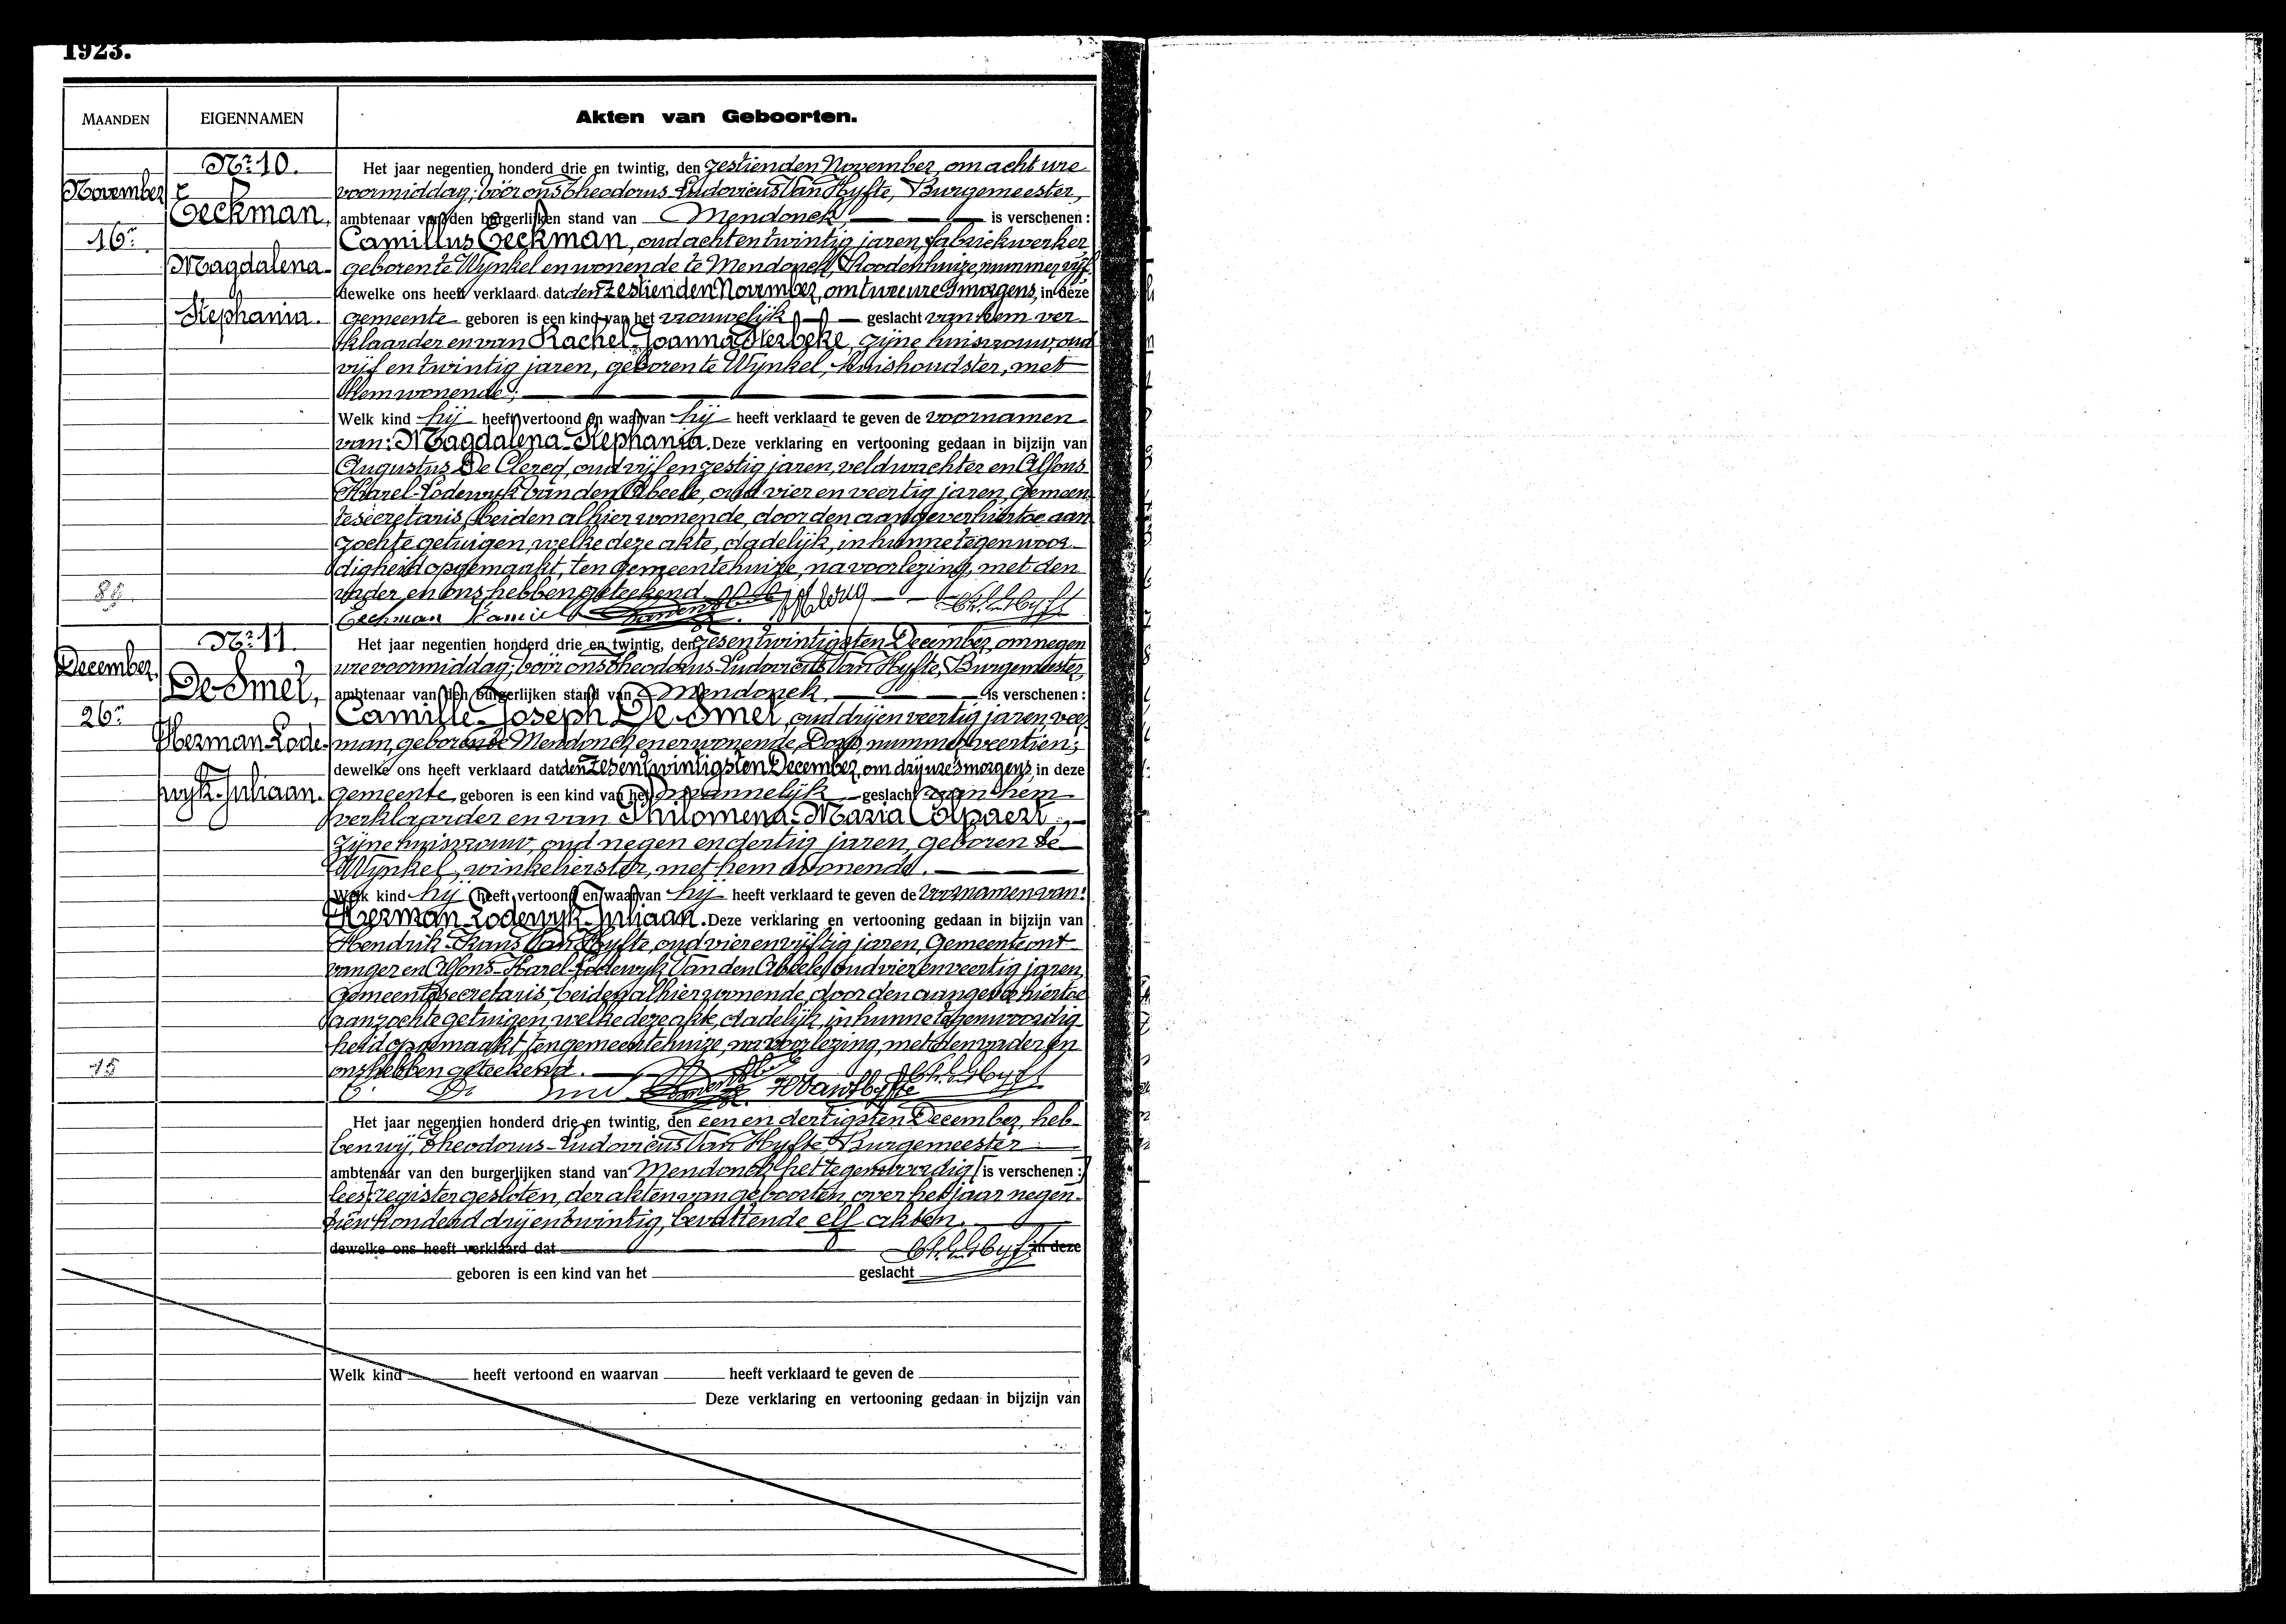 1923.
MAANDEN
EIGENNAMEN
Akten van Geboorten.
Nr 10.
November
Eeckman,
16n
Magdalena-
Stephania.
Het jaar negentien honderd drie en twintig, den zestienden November, om acht ure
voormiddag; vóór ons Theodorus-Ludovicus Van Hyfte, Burgemeester,
ambtenaar van den burgerlijken stand van Mendonck is verschenen:
Camillus Eeckman, oud acht en twintig jaren, fabriekwerker
geboren te Wynkel en wonende te Mendonck, Roodenhuize, nummer vijf
dewelke ons heeft verklaard dat den zestienden November, om twee ure 's morgens, in deze
gemeente geboren is een kind van het vrouwelijk geslacht van hem ver-
klaarder en van Rachel-Joanna Sterbeke, zijne huisvrouw, oud
vijf en twintig jaren, geboren te Wynkel, huishoudster, met
hem wonende;
Welk kind hij heeft vertoond en waarvan hij heeft verklaard te geven de voornamen
van: Magdalena-Stephania. Deze verklaring en vertooning gedaan in bijzijn van
Augustus De Clercq, oud vijf en zestig jaren, veldwachter en Alfons-
Karel-Lodewyk Van den Abeele, oud vier en veertig jaren, gemeen-
tesecretaris, beiden alhier wonende, door den aangever hiertoe aan-
zochte getuigen, welke deze akte, dadelijk, in hunne tegenwoor-
digheid opgemaakt, ten gemeentehuize, na voorlezing, met den
vader en ons hebben geteekend.
Eeckman Kamiel
Nr 11.
December,
De Smet,
26n
Herman-Lode-
wyk-Juliaan.
15
Het jaar negentien honderd drie en twintig, den zes en twintigsten December, om negen
ure voormiddag; vóór ons Theodorus-Ludovicus Van Hyfte, Burgemeester,
ambtenaar van den burgerlijken stand van Mendonck, is verschenen:
Camille-Joseph De Smet, oud drij en veertig jaren, vee-
man, geboren te Mendonck en er wonende, Dorp, nummer veertien;
dewelke ons heeft verklaard dat den zes en twintigsten December, om drij ure 's morgens, in deze
gemeente, geboren is een kind van het mannelijk geslacht van hem
verklaarder en van Philomena-Maria Colpaert,
zijne huisvrouw, oud negen en dertig jaren, geboren te
Wynkel, winkelierster, met hem wonende.
Welk kind hij heeft vertoond en waarvan hij heeft verklaard te geven de voornamen van:
Herman-Lodewyk-Juliaan. Deze verklaring en vertooning gedaan in bijzijn van
Hendrik-Frans Van Hyfte, oud vier en vijftig jaren, Gemeenteont-
vanger en Alfons-Karel-Lodewyk Van den Abeele, oud vier en veertig jaren,
Gemeentesecretaris, beiden alhier wonende, door den aangever hiertoe
aanzochte getuigen, welke deze akte, dadelijk, in hunne tegenwoordig-
heid opgemaakt, ten gemeentehuize, na voorlezing, met den vader en
ons hebben geteekend.
H Van Hyfte
Het jaar negentien honderd drie en twintig, den een en dertigsten December, heb-
ben wij, Theodorus-Ludovicus Van Hyfte, Burgemeester
ambtenaar van den burgerlijken stand van Mendonck het tegenwoordig [is verschenen:
lees] register gesloten, der akten van geboorten, over het jaar negen-
tien honderd drij en twintig, bevattende elf akten.
dewelke ons heeft verklaard dat in deze
geboren is een kind van het geslacht
Welk kind heeft vertoond en waarvan heeft verklaard te geven de
Deze verklaring en vertooning gedaan in bijzijn van